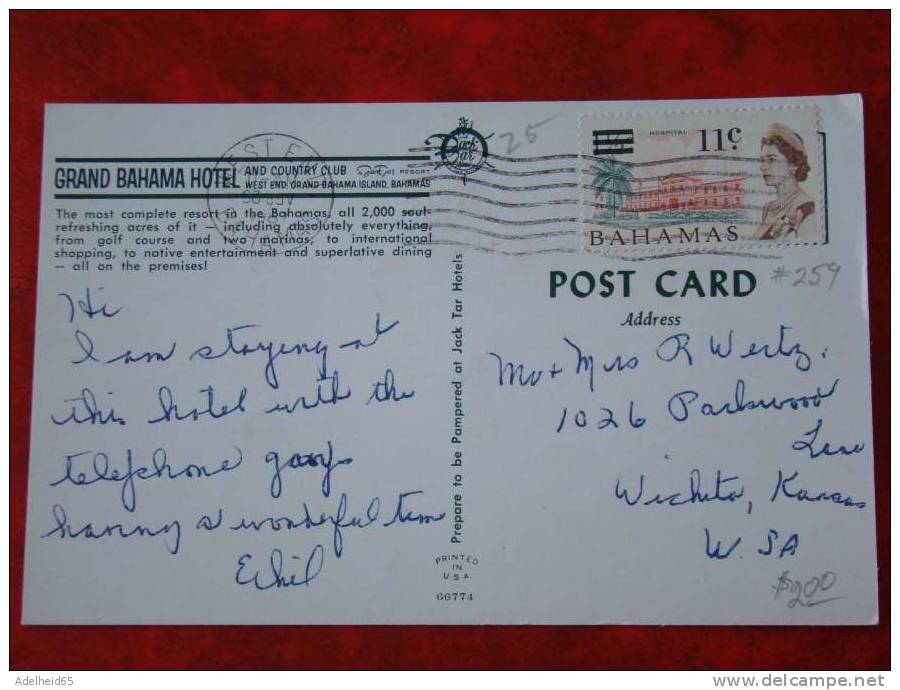 GRAND BAHAMA HOTEL AND COUNTRY CLUB
Jack Tar RESORT
WEST END, GRAND BAHAMA ISLAND, BAHAMAS
The most complete resort in the Bahamas, all 2,000 soul-
refreshing acres of it — including absolutely everything,
from golf course and two marinas, to international
shopping, to native entertainment and superlative dining
— all on the premises!
Hi
I am staying at
this hotel with the
telephone gang
having a wonderful time
Prepare to be Pampered at Jack Tar Hotels
PRINTED
IN
U.S.A.
66774
WEST END
Jack
Tar
25
HOSPITAL
11c
BAHAMAS
#259
POST CARD
Address
Mr + Mrs R Wertz.
1026 Parkwood
Lane
Wichita, Kansas
U.SA
$2.00
Adelheid65
www.delcampe.net